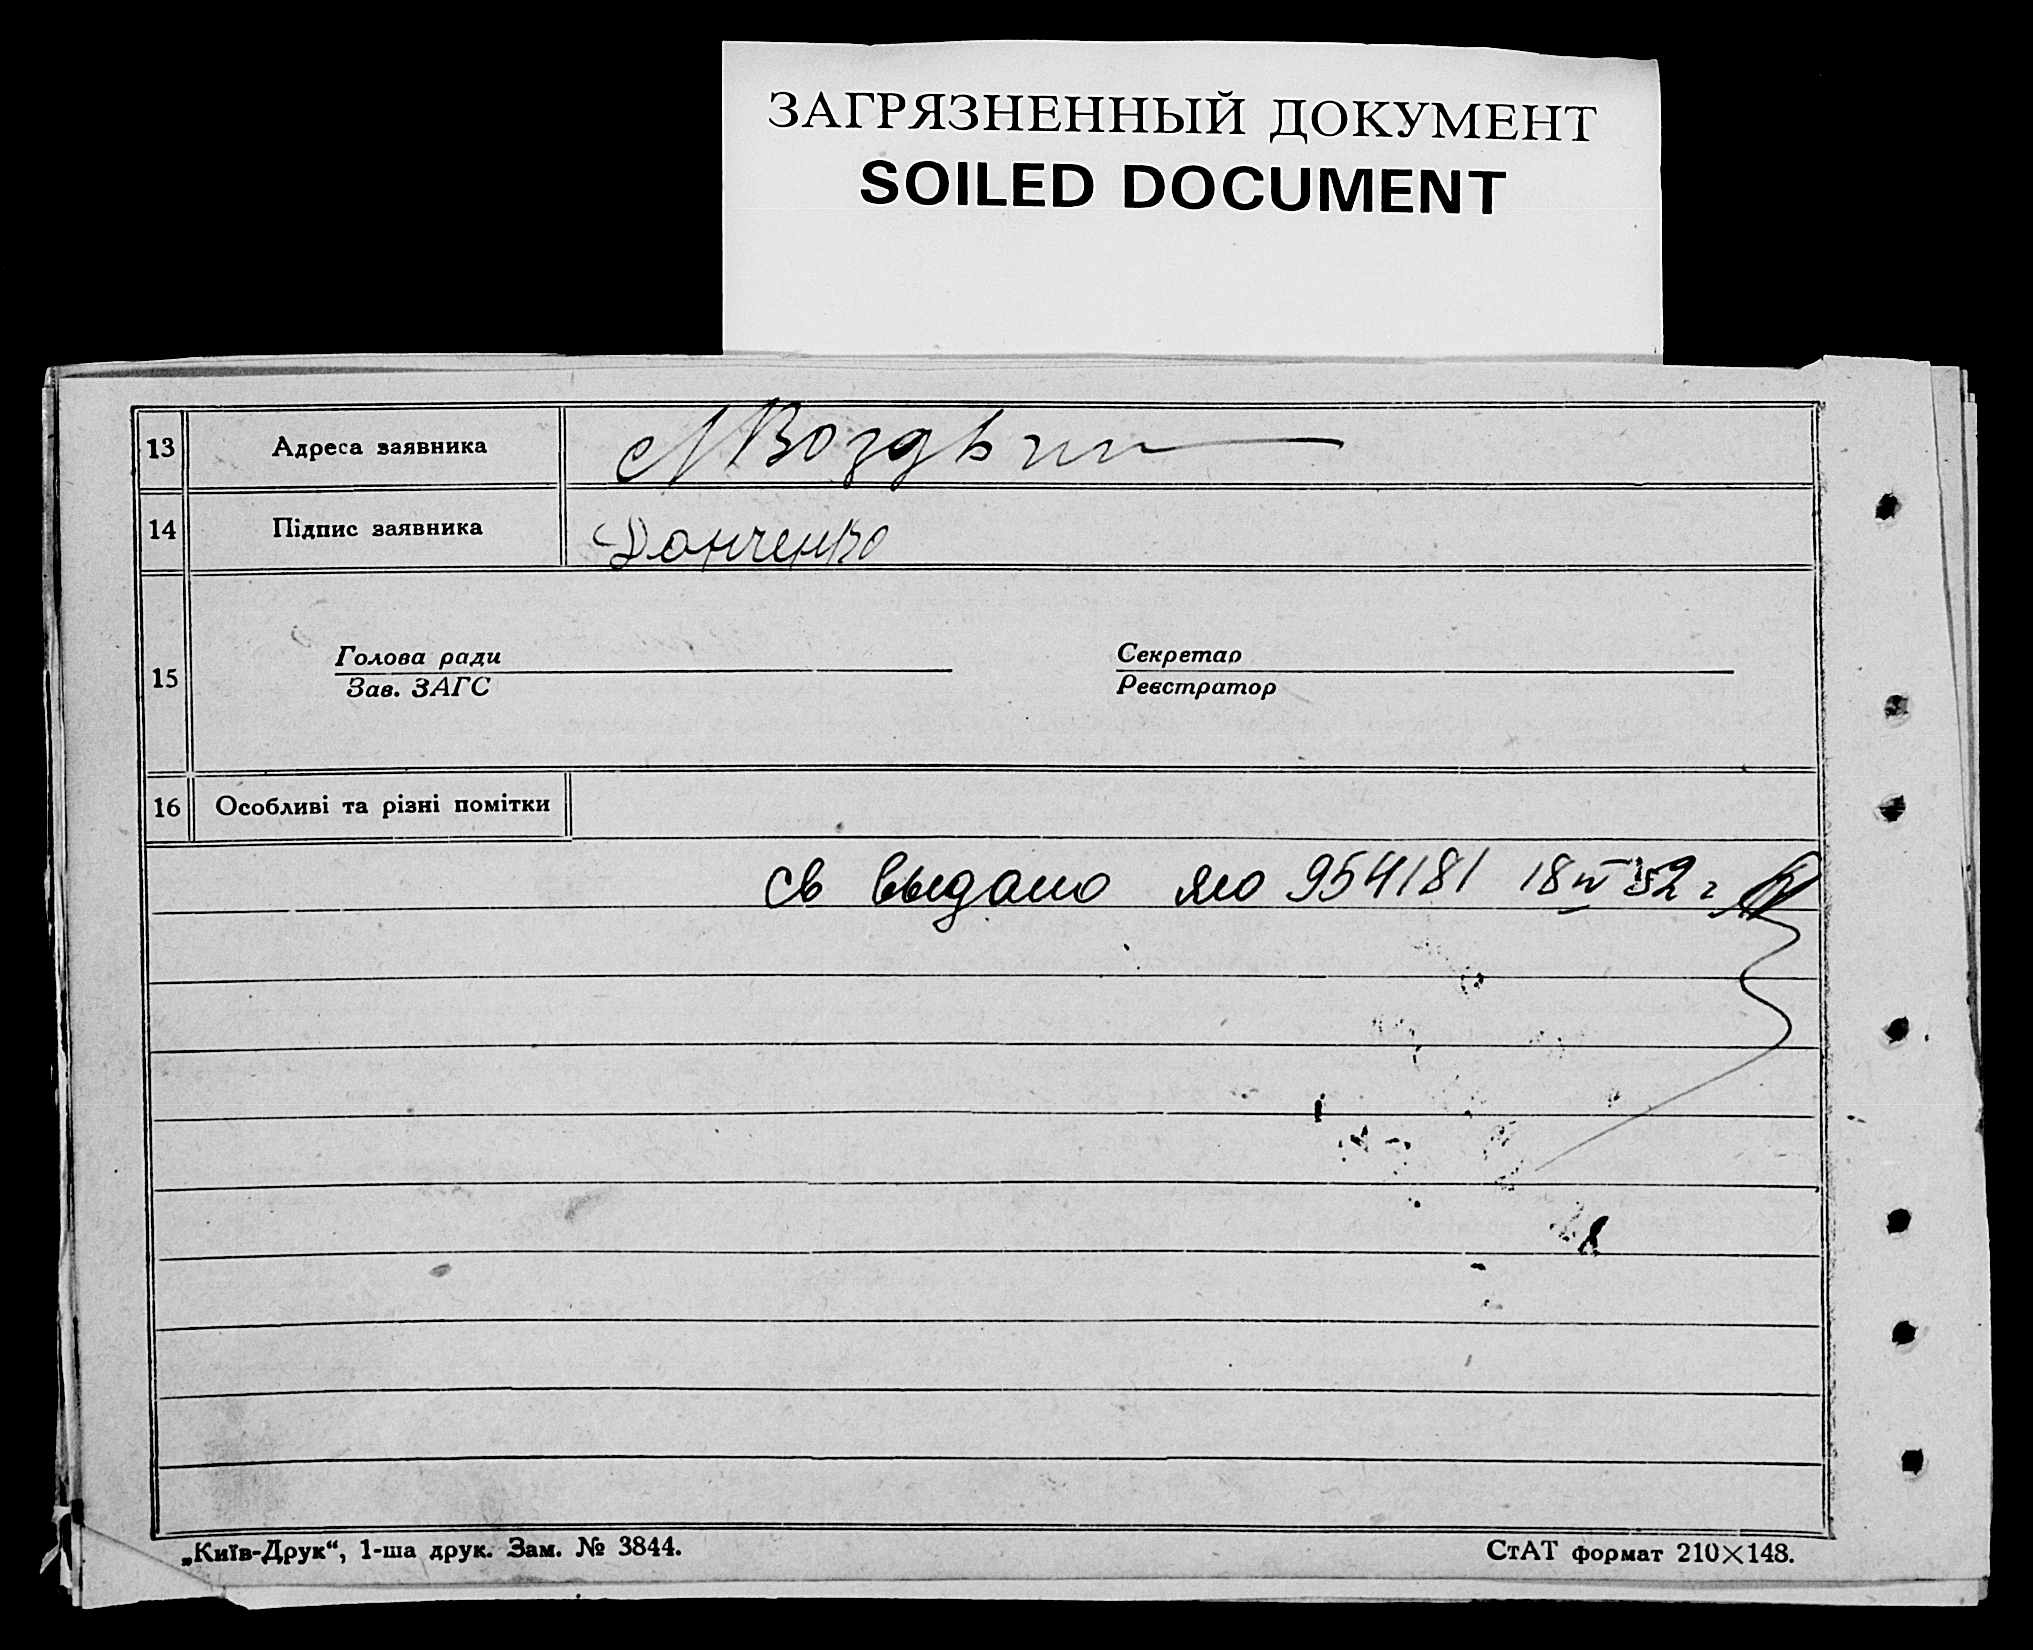 ЗАГРЯЗНЕННЫЙ ДОКУМЕНТ
SOILED DOCUMENT
13 Адреса заявника
14 Підпис заявника Донченко
15 Голова ради Секретар
Зав. ЗАГС Реєстратор
16 Особливі та різні помітки
св выдано 954181 18 IV 52 г
„Київ-Друк“, 1-ша друк. Зам. № 3844. СтАТ формат 210×148.